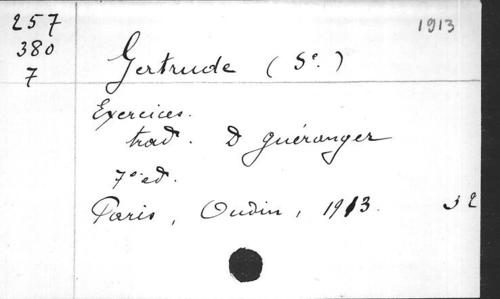 257
380
7
1913
Gertrude (Se.)
Exercices.
trad. D Guéranger
7e ed.
Paris, Oudin, 1913. 32